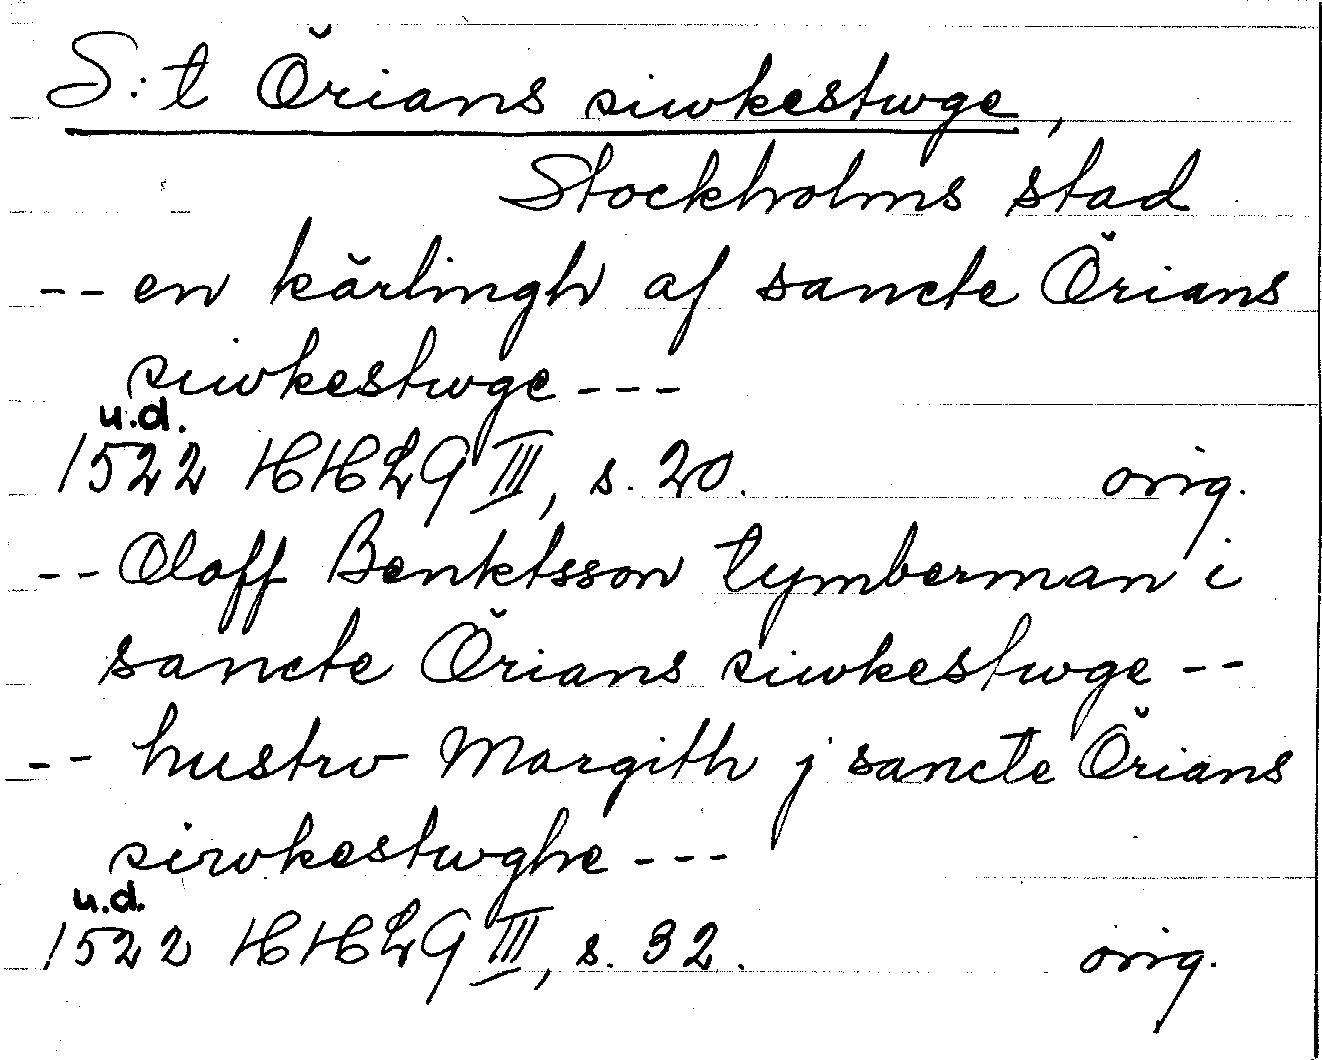 S:t Örians siwkestwge,
Stockholms stad
-- en kärlingh af sancte Örians
siwkestwge ---
u.d.
1522 HHLG III, s. 20. orig.
-- Oloff Benktsson tymberman i
sancte Örians siwkestwge --
-- hustrv Margith j sancte Örians
sirwkestwghe ---
u.d.
1522 HHLG III, s. 32. orig.